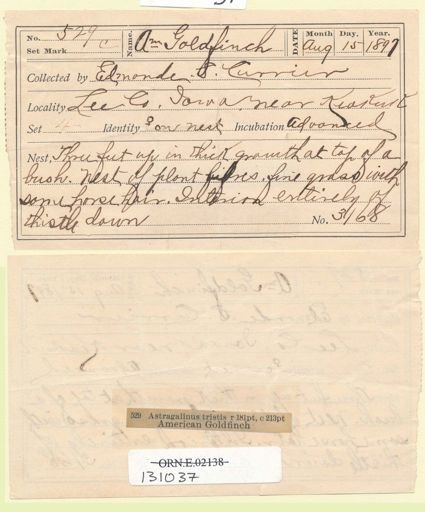 No. 529 c Name. Am Goldfinch DATE Month Day. Year.
Set Mark Aug 15 1897
Collected by Edmonde S. Currier
Locality Lee Co. Iowa near Keokuk
Set 4 Identity ♀ on nest Incubation Advanced
Nest. Three feet up in thick growth at top of a
bush. Nest of plant fibres. fine grass, with
some horse hair. Interior entirely of
thistle down No. 3/68
529 Astragalinus tristis r 181pt, c 213pt
American Goldfinch
ORN.E.02138
131037